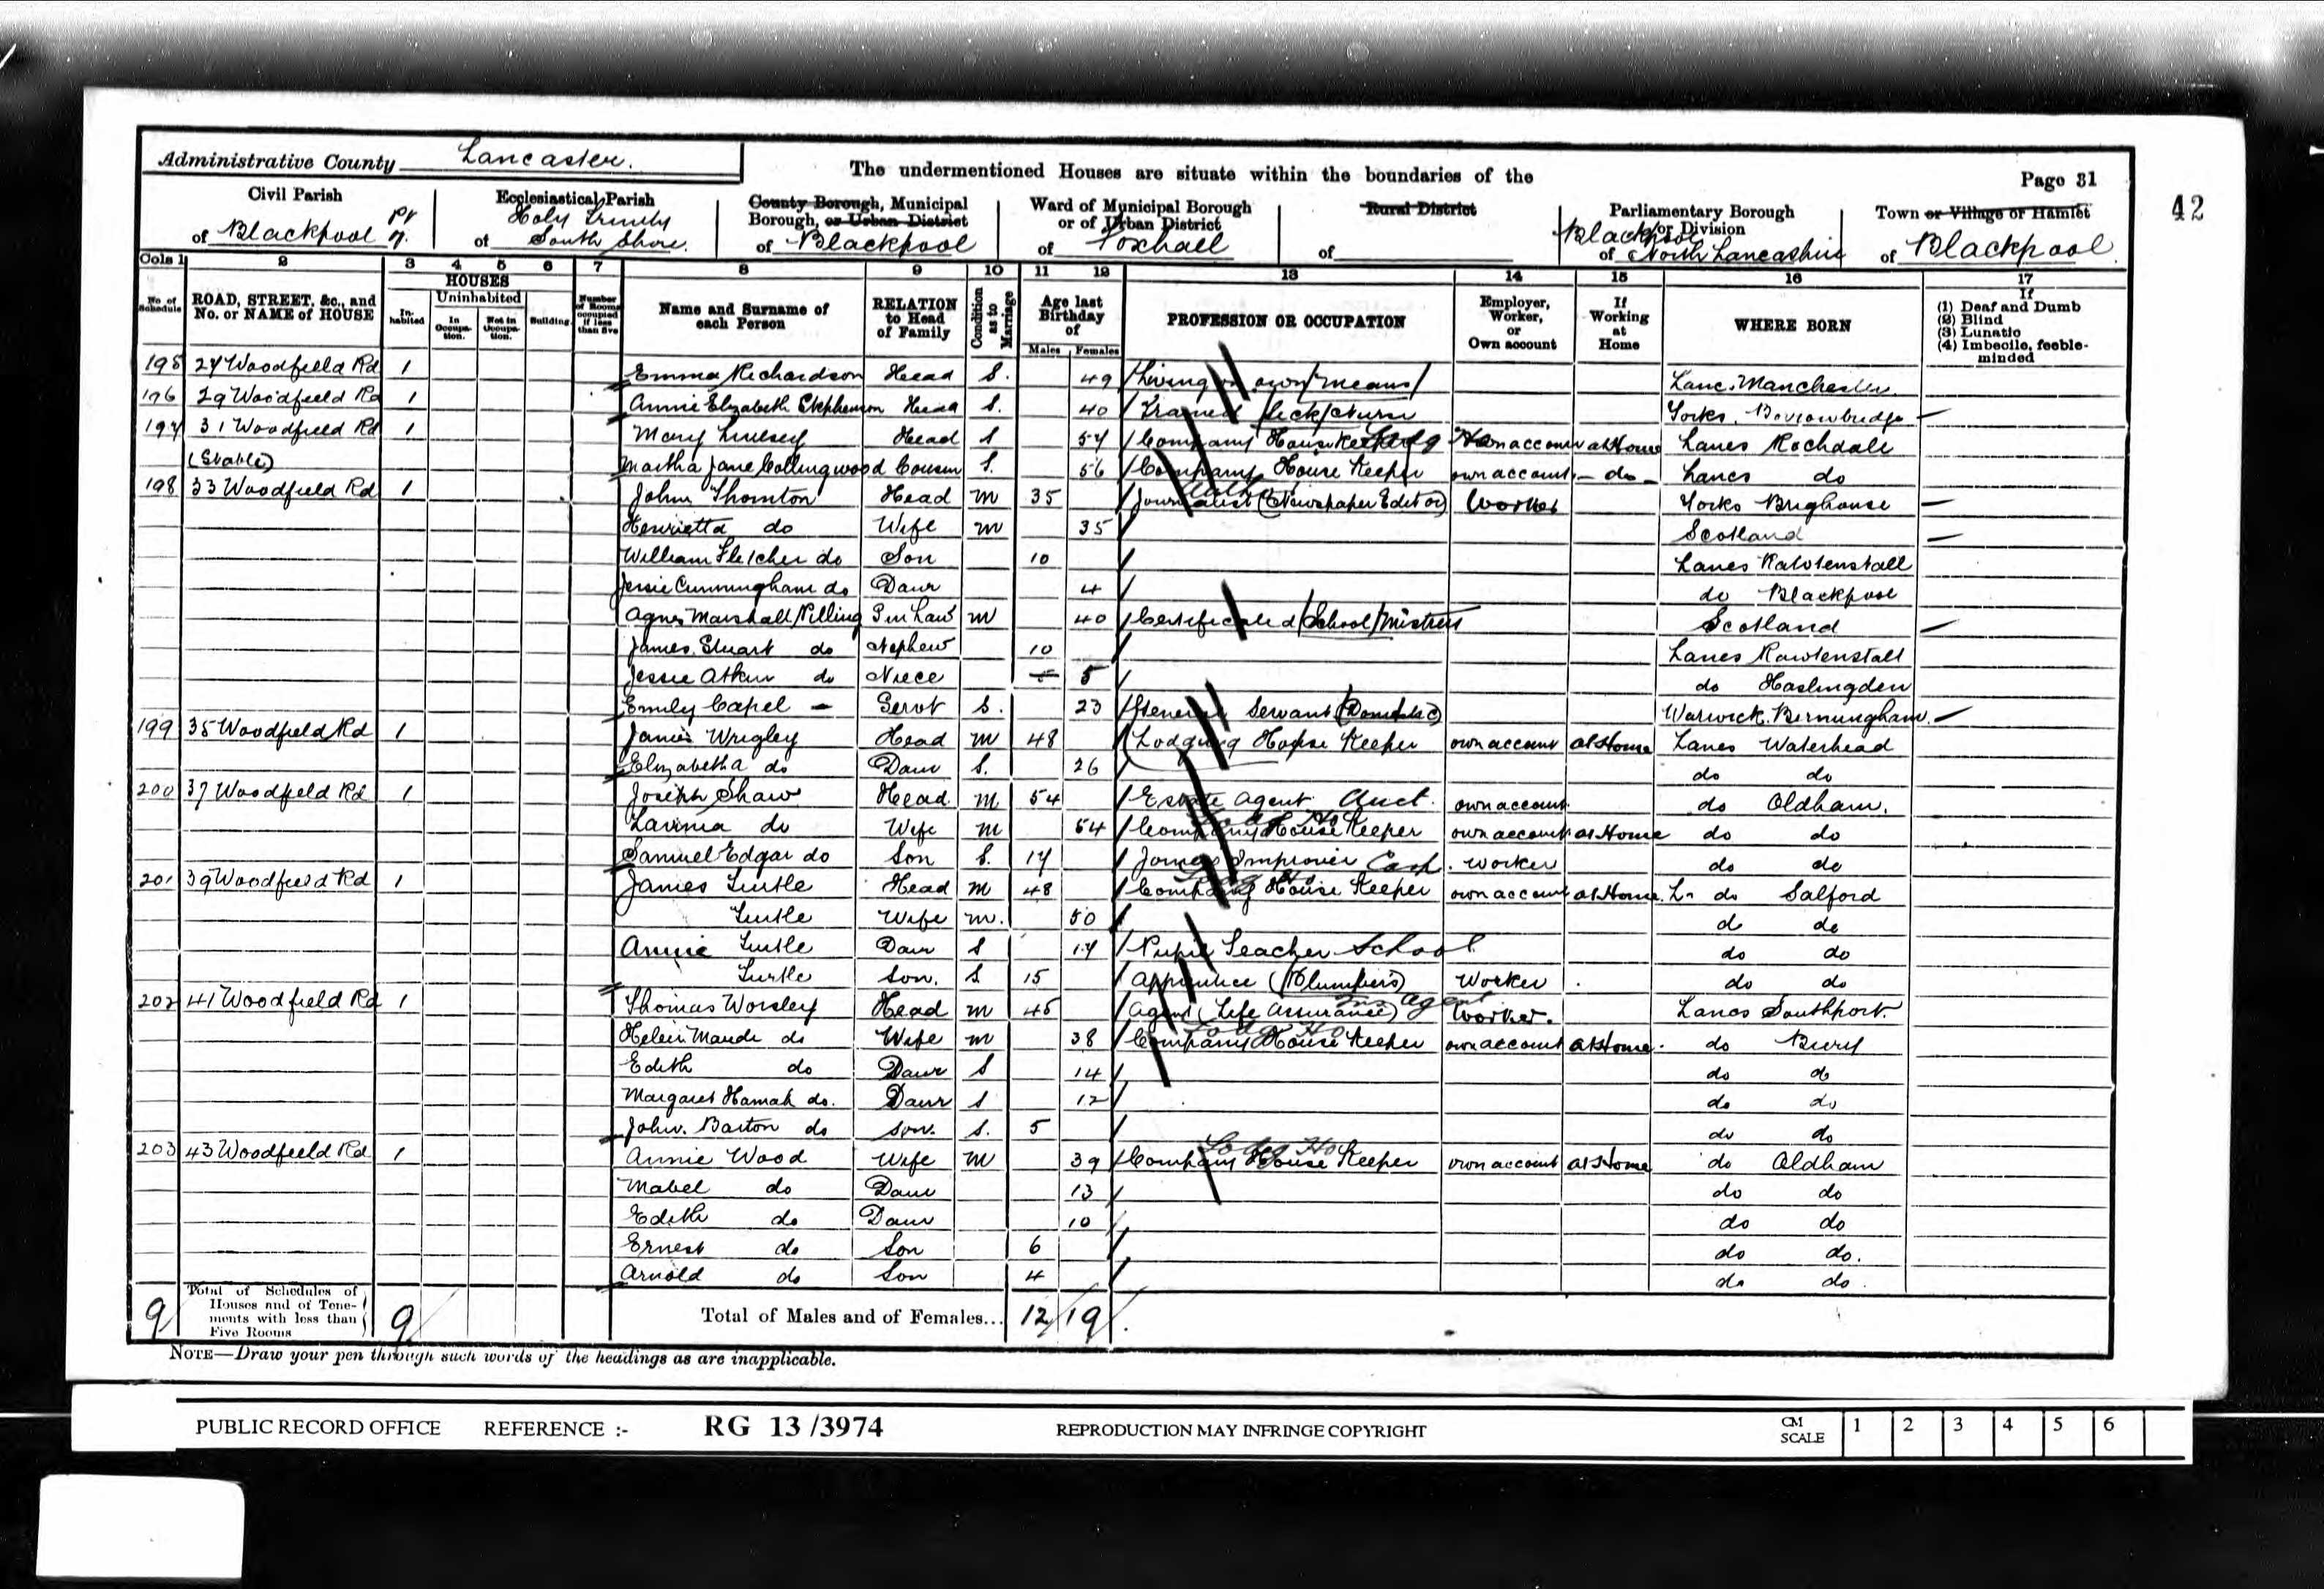 Administrative County Lancaster.
The undermentioned Houses are situate within the boundaries of the
Page 31
42
Civil Parish
of Blackpool Pt
Ecclesiastical Parish
of Holy Trinity South Shore.
County Borough, Municipal Borough, or Urban District
of Blackpool
Ward of Municipal Borough or of Urban District
of Foxhall
Rural District
of
Parliamentary Borough or Division
of Blackpool North Lancashire
Town or Village or Hamlet
of Blackpool.
Cols 1 2 3 4 5 6 7 8 9 10 11 12 13 14 15 16 17
No. of Schedule
ROAD, STREET, &c., and No. or NAME of HOUSE
HOUSES
Inhabited
Uninhabited
In Occupation.
Not in Occupation.
Building.
Number of Rooms occupied if less than five
Name and Surname of each Person
RELATION to Head of Family
Condition as to Marriage
Age last Birthday of
Males Females
PROFESSION OR OCCUPATION
Employer, Worker, or Own account
If Working at Home
WHERE BORN
If
(1) Deaf and Dumb
(2) Blind
(3) Lunatic
(4) Imbecile, feeble-minded
195 27 Woodfield Rd 1 Emma Richardson Head S. 49 Living on own means Lanc. Manchester
196 29 Woodfield Rd 1 Annie Elizabeth Stephenson Head S. 40 Trained Sick Nurse Yorks. Borrowbridge
197 31 Woodfield Rd 1 Mary Livesey Head S 57 Company House Keeper own account at Home Lancs Rochdale
(Stable) Martha Jane Collingwood Cousin S. 56 Company House Keeper own account do Lancs do
198 33 Woodfield Rd 1 John Thornton Head M 35 Journalist (Newspaper Editor) Worker Yorks Brighouse
Henrietta do Wife M 35 Scotland
William Fletcher do Son 10 Lancs Rawtenstall
Jessie Cunningham do Daur 4 do Blackpool
Agnes Marshall Pilling S in Law M 40 Certificated School Mistress Scotland
James Stuart do Nephew 10 Lancs Rawtenstall
Jessie Atkin do Niece 5 do Haslingden
Emily Capel Servt S. 23 General Servant (Domestic) Warwick. Birmingham.
199 35 Woodfield Rd 1 James Wrigley Head M 48 Lodging House Keeper own account at Home Lancs Waterhead
Elizabetha do Daur S. 26 do do
200 37 Woodfield Rd 1 Joseph Shaw Head M 54 Estate Agent Auct. own account do Oldham.
Lavinia do Wife M 54 Company House Keeper own account at Home do do
Samuel Edgar do Son S. 17 Joiners Improver Carp. Worker do do
201 39 Woodfield Rd 1 James Turtle Head M 48 Company House Keeper own account at Home. do Salford
Turtle Wife M. 50 do do
Annie Turtle Daur S 17 Pupil Teacher School. do do
Turtle Son. S 15 Apprentice (Plumbers) Worker do do
202 41 Woodfield Rd 1 Thomas Worsley Head M 45 Agent (Life Assurance) Ins Agent Worker. Lancs Southport.
Helen Maude do Wife M 38 Company House Keeper own account at Home. do Bury
Edith do Daur S 14 do do
Margaret Hannah do. Daur S 12 do do
John. Barton do Son. S. 5 do do
203 43 Woodfield Rd 1 Annie Wood Wife M 39 Company House Keeper own account at Home do Oldham
Mabel do Daur 13 do do
Edith do Daur 10 do do
Ernest do Son 6 do do.
Arnold do Son 4 do do.
9 Total of Schedules of Houses and of Tenements with less than Five Rooms 9 Total of Males and of Females... 12 19
NOTE—Draw your pen through such words of the headings as are inapplicable.
PUBLIC RECORD OFFICE REFERENCE :- RG 13 /3974 REPRODUCTION MAY INFRINGE COPYRIGHT CM SCALE 1 2 3 4 5 6